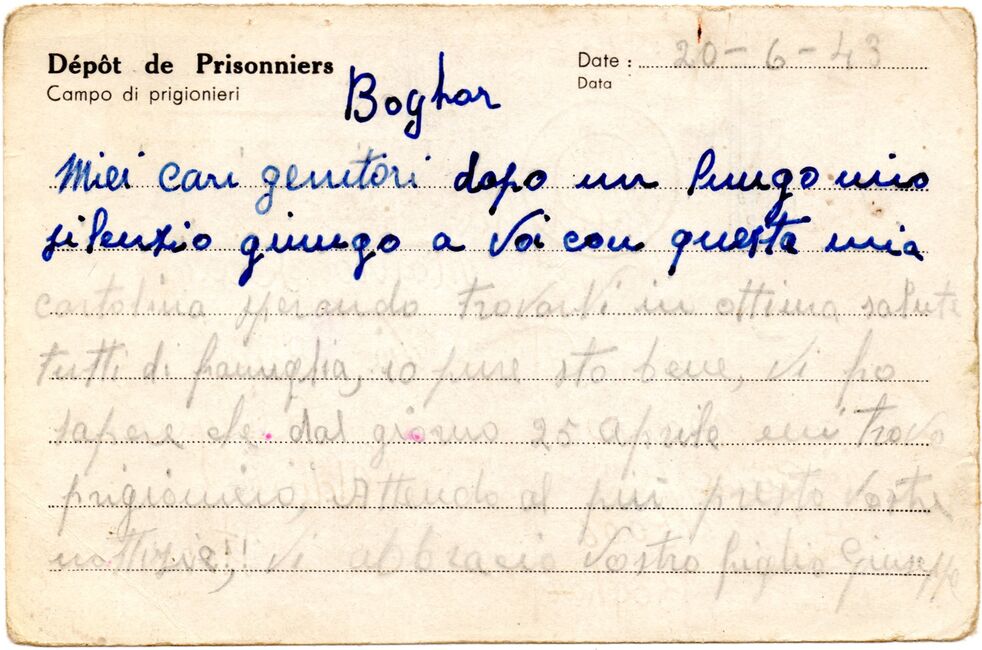 Dépôt de Prisonniers
Campo di prigionieri
Boghar
Date : 20-6-43
Data
Miei cari genitori dopo un lungo mio
silenzio giungo a Voi con questa mia
cartolina sperando trovarVi in ottima salute
tutti di famiglia, io pure sto bene, Vi fo
sapere che dal giorno 25 Aprile mi trovo
prigioniero, Attendo al più presto Vostre
nottizie,!! Vi abbracio Vostro figlio Giuseppe